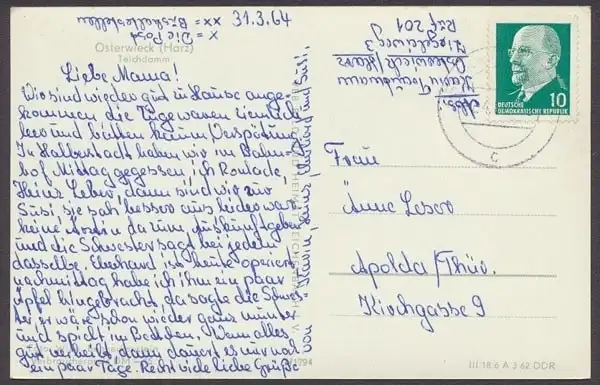 x = Die Post
xx = Bushaltestelle
31.3.64
Osterwieck (Harz)
Teichdamm
Liebe Mama!
Wir sind wieder gut zu Hause ange-
kommen die Züge waren ziemlich
leer und hatten kaum Verspätung.
In Halberstadt haben wir im Bahn-
hof Mittag gegessen, ich Roulade,
Heinz Leber, dann sind wir zur
Susi sie sah besser aus leider war
keine Ärztin da zur Auskunft geben
und die Schwester sagt bei jedem
dasselbe. Eberhard ist heute operiert
nachmittag habe ich ihm ein paar
Äpfel hingebracht da sagte die Schwes-
ter er wäre schon wieder ganz munter
und spielt im Bettchen. Wenn alles
gut verheilt dann dauert es nur noch
ein paar Tage. Recht viele liebe Grüße
von Karin, Heinz, Eberhard und Susi.
Abs.
Karin
Osterwieck/Harz
Ziegeleiweg 3
Ruf 201
DEUTSCHE
DEMOKRATISCHE REPUBLIK
10
Frau
Änne Leser
Apolda/Thür.
Kirchgasse 9
III 18 6 A 3 62 DDR